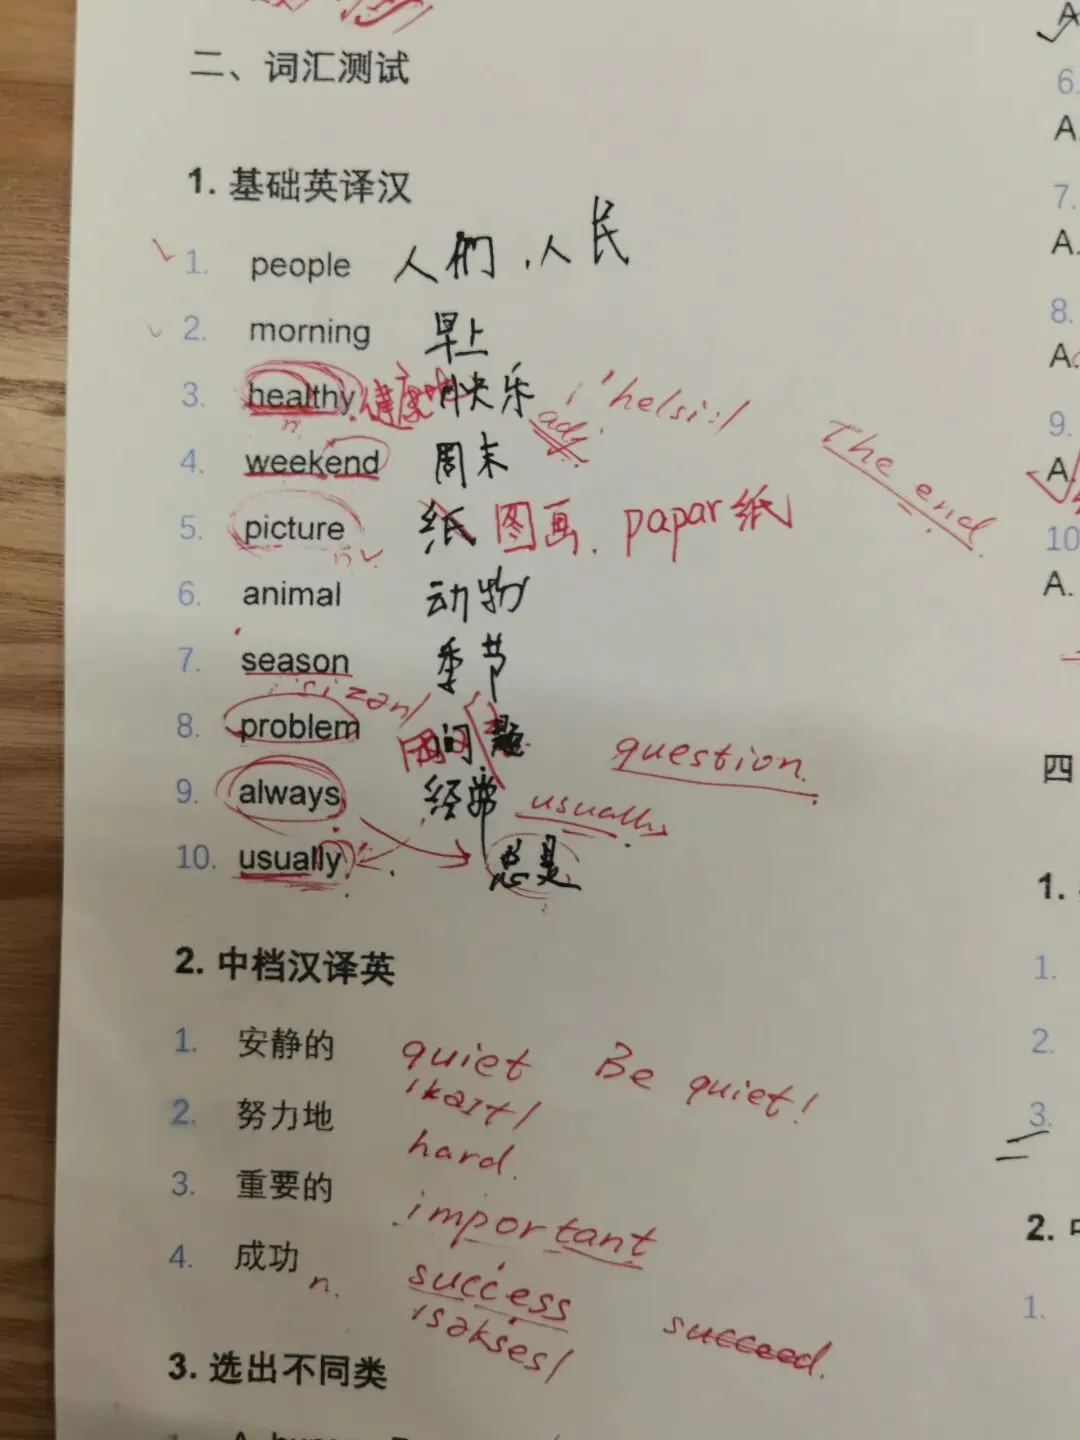 二、词汇测试
1. 基础英译汉
1. people 人们,人民
2. morning 早上
3. healthy 健康 快乐 adj. /'helsi:/
n.
4. weekend 周末 The end
5. picture 纸 图画. papar 纸
n.
6. animal 动物
7. season 季节
/'sizən/
8. problem 问题 question.
9. always 经常 usually
10. usually 总是
2. 中档汉译英
1. 安静的 quiet Be quiet!
/kaɪt/
2. 努力地 hard.
3. 重要的 important
4. 成功 n. success succeed.
/səkses/
3. 选出不同类
A
6.
A.
7.
A.
8.
A.
9.
A.
10
A.
四
1.
1.
2.
3.
2. 中
1.